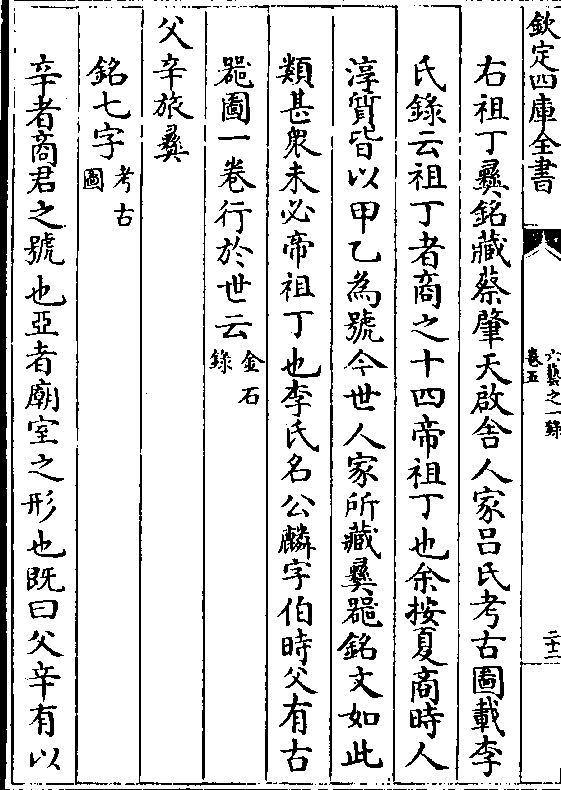 欽定四庫全書
六藝之一錄
卷五
二十二
右祖丁彞銘藏蔡肇天啟舎人家吕氏考古圖載李
氏錄云祖丁者商之十四帝祖丁也余按夏商時人
淳質皆以甲乙為號今世人家所藏彞噐銘文如此
類甚衆未必帝祖丁也李氏名公麟字伯時父有古
噐圖一卷行於世云金石
錄
父辛旅彞
銘七字考古
圖
辛者商君之號也亞者廟室之形也既曰父辛有以